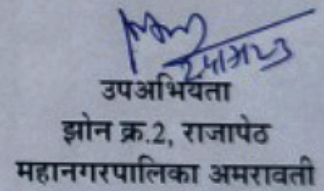 उपअभियंता
झोन क्र.2, राजापेठ
महानगरपालिका अमरावती